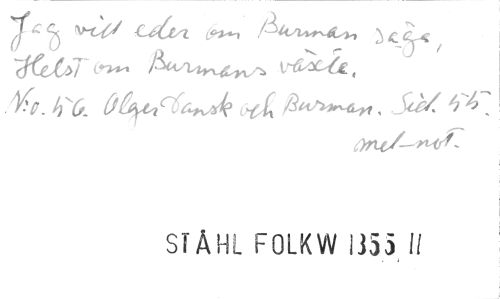 Jag vill eder om Burman säga,
Helst om Burmans växte.
N:o. 56. Olger Dansk och Burman. Sid. 55.
mel-not.
STÅHL FOLKW 1355 II